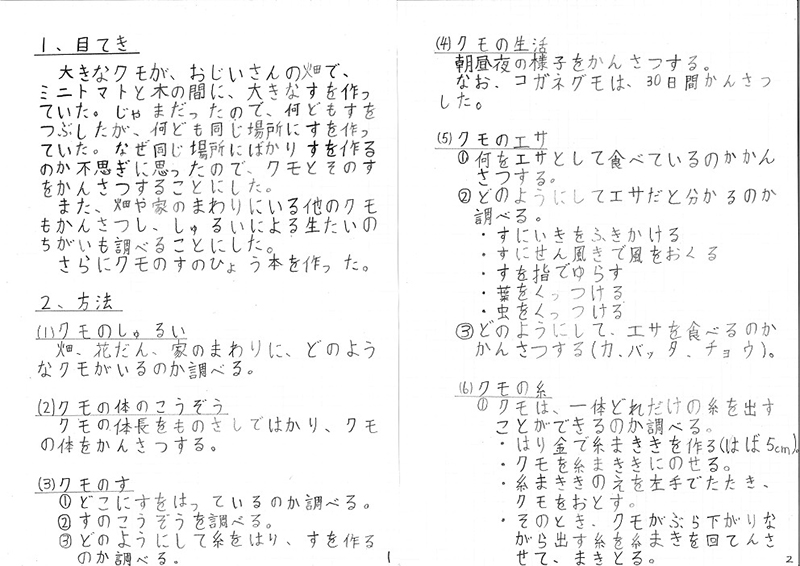 1、目てき
大きなクモが、おじいさんの畑で、
ミニトマトと木の間に、大きなすを作っ
ていた。じゃまだったので、何どもすを
つぶしたが、何ども同じ場所にすを作っ
ていた。なぜ同じ場所にばかりすを作る
のか不思ぎに思ったので、クモとそのす
をかんさつすることにした。
また、畑や家のまわりにいる他のクモ
もかんさつし、しゅるいによる生たいの
ちがいも調べることにした。
さらにクモのすのひょう本を作った。
2、方法
(1)クモのしゅるい
畑、花だん、家のまわりに、どのよう
なクモがいるのか調べる。
(2)クモの体のこうぞう
クモの体長をものさしではかり、クモ
の体をかんさつする。
(3)クモのす
①どこにすをはっているのか調べる。
②すのこうぞうを調べる。
③どのようにして糸をはり、すを作る
のか調べる。
1
(4)クモの生活
朝昼夜の様子をかんさつする。
なお、コガネグモは、30日間かんさつ
した。
(5)クモのエサ
①何をエサとして食べているのかかん
さつする。
②どのようにしてエサだと分かるのか
調べる。
・すにいきをふきかける
・すにせん風きで風をおくる
・すを指でゆらす
・葉をくっつける
・虫をくっつける
③どのようにして、エサを食べるのか
かんさつする(カ、バッタ、チョウ)。
(6)クモの糸
①クモは、一体どれだけの糸を出す
ことができるのか調べる。
・はり金で糸まききを作る(はば5cm)。
・クモを糸まききにのせる。
・糸まききのえを左手でたたき、
クモをおとす。
・そのとき、クモがぶら下がりな
がら出す糸を糸まきを回てんさ
せて、まきとる。
2